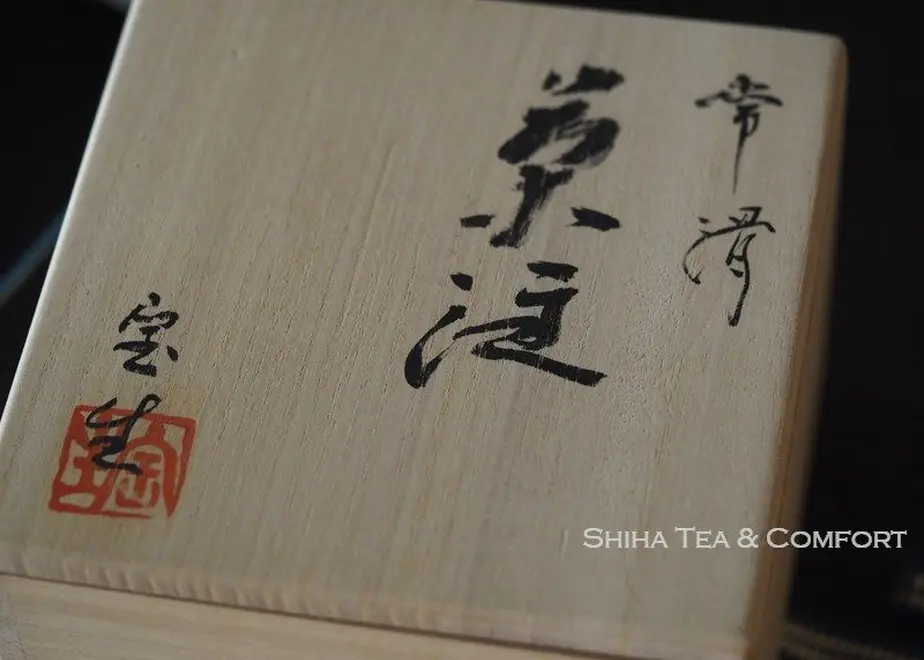 常滑
茶注
宝生
宝生
SHIHA TEA & COMFORT